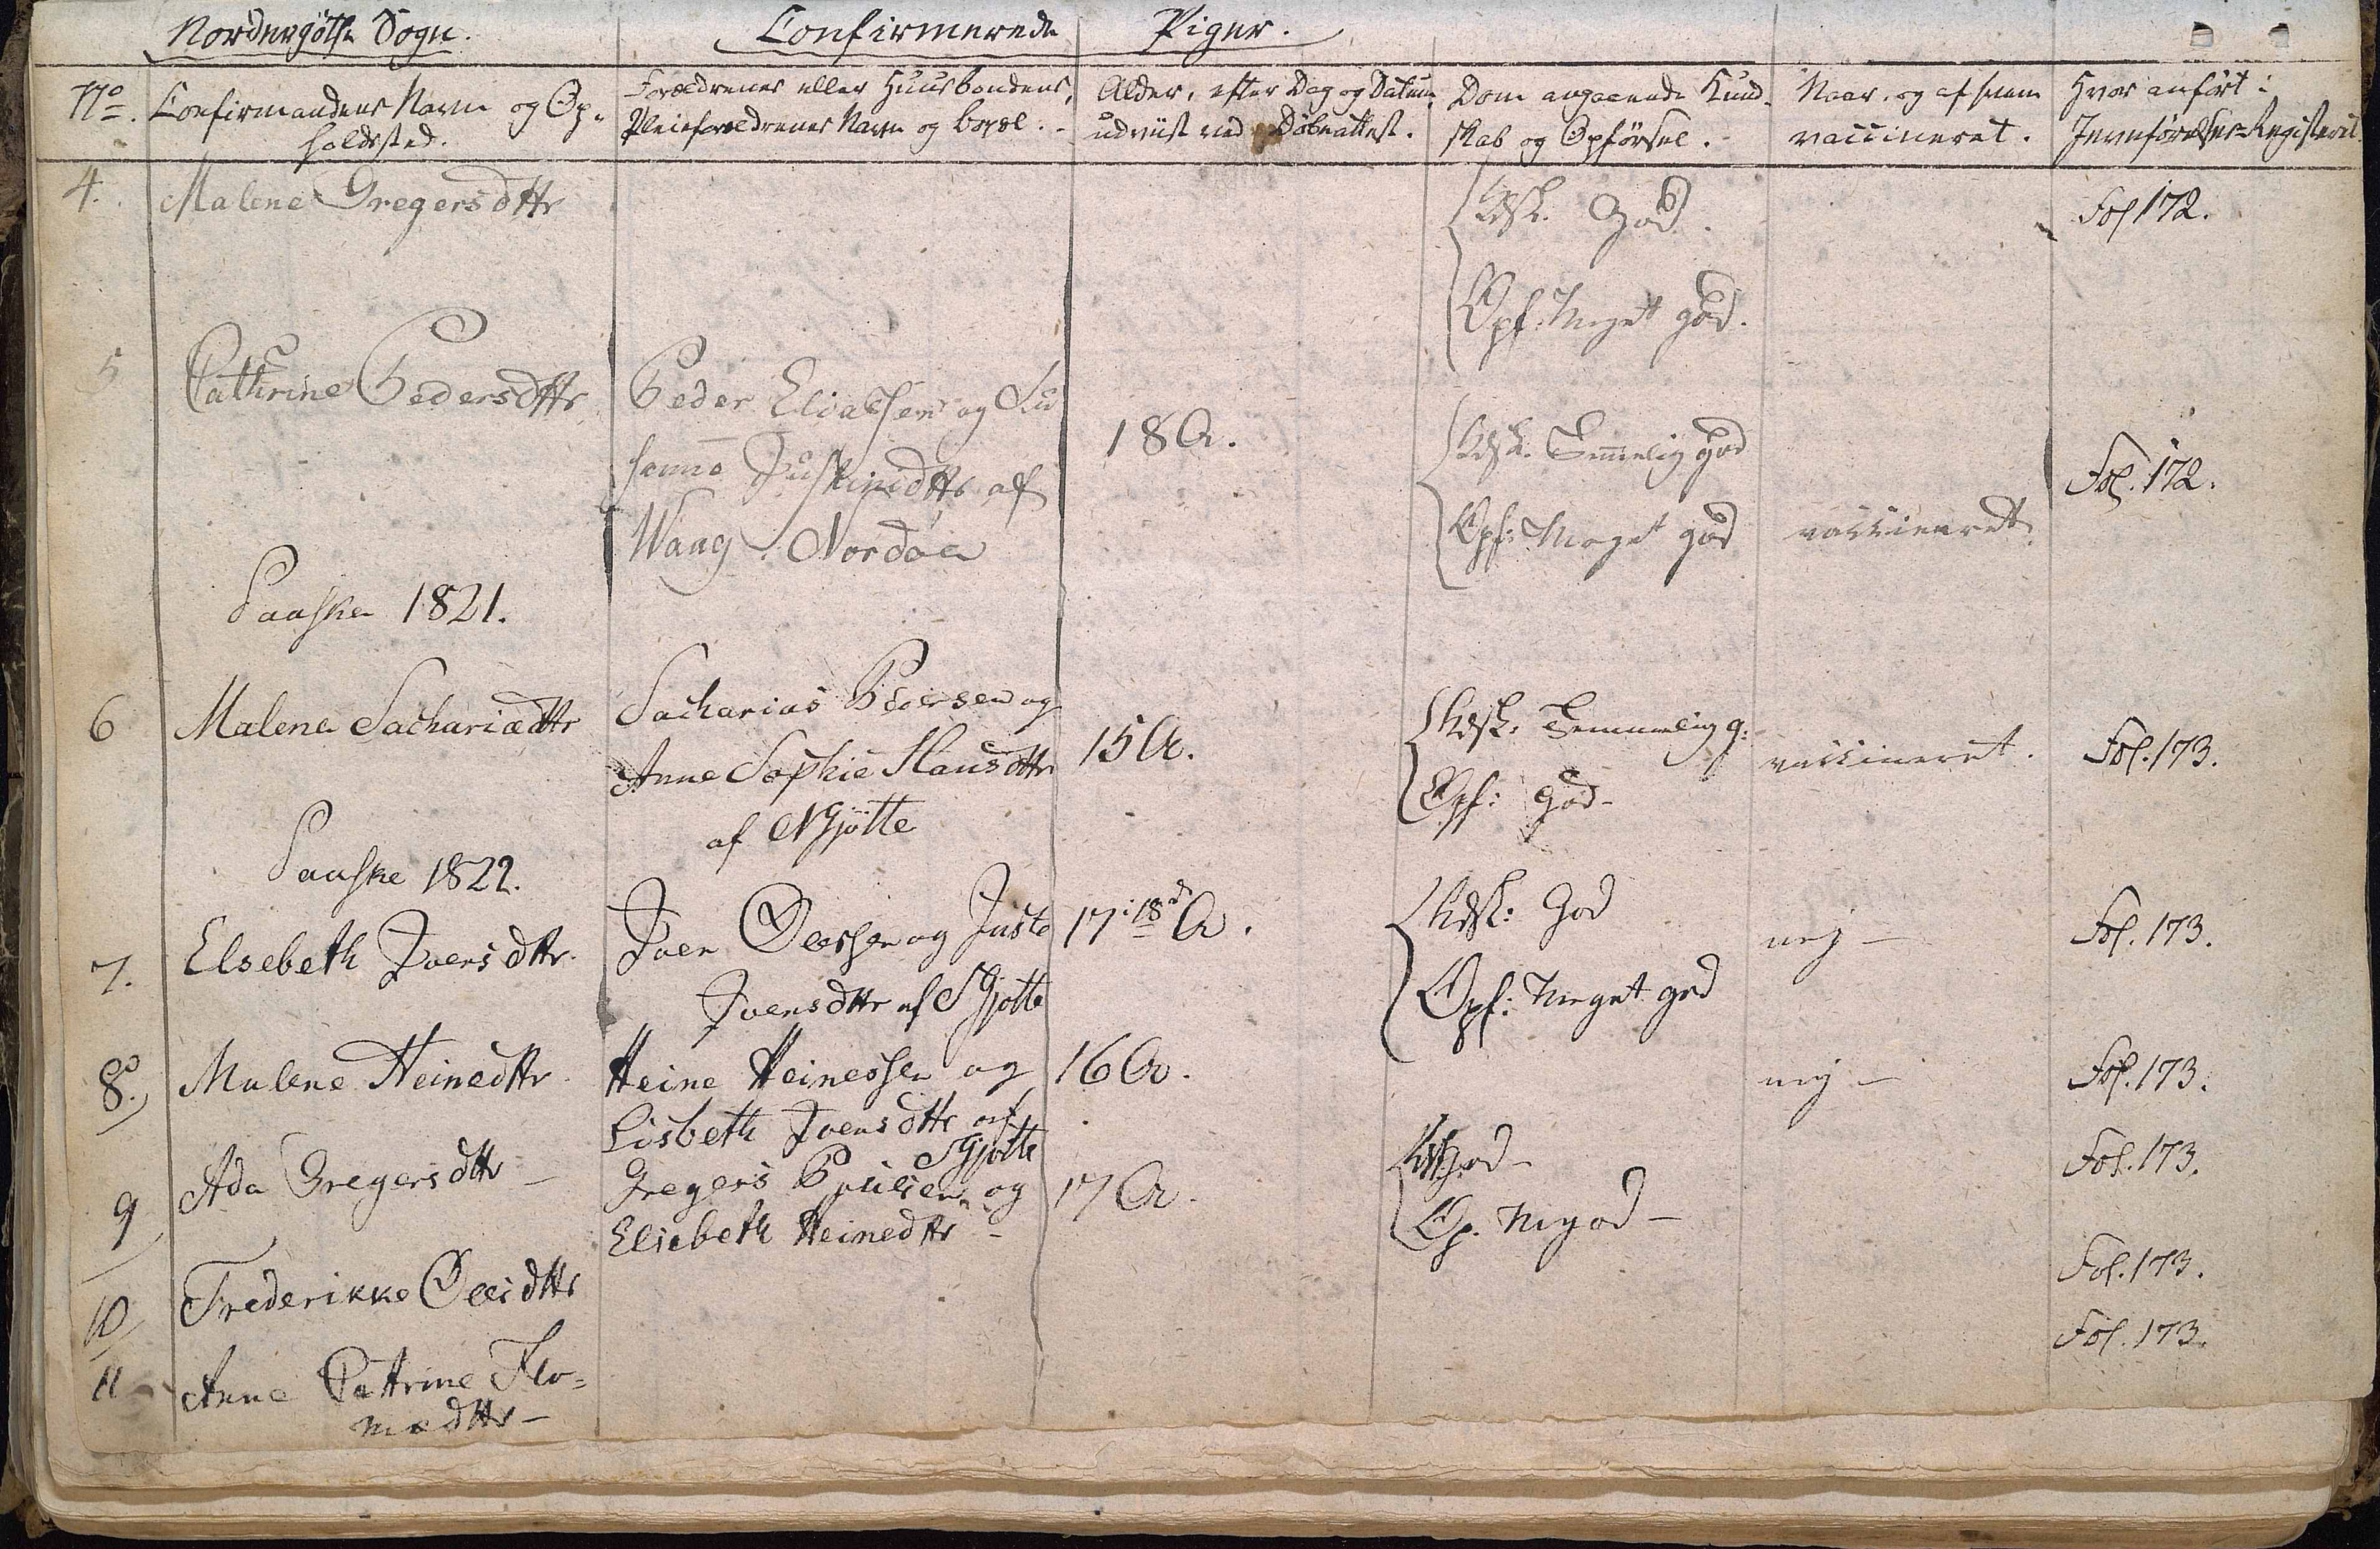 Nordergjøthe Sogn. Confirmerede Piger.
No. Confirmandens Navn og Op-
holdssted.
Forældrenes eller Huusbondens,
Pleieforældrenes Navn og boepæl.
Alder, efter Dag og Datum
udviist ved Døbeattest.
Dom angaaende Kund-
skab og Opførsel.
Naar, og af hvem
vaccineret.
Hvor anført i
Jevnførelses-Registeret
4. Malene Gregersdttr
Kdsk. God.
Opf: Meget god.
Fol 172.
5 Cathrine Pedersdttr
Peder Eliassen og Su
sanne af
Waag Nordøe
18 A.
Kdsk. Temmelig god
Opf: Meget god
vaccineret.
Fol. 172.
Paaske 1821.
6 Malene Sachariædttr
Sacharias Pedersen og
Anne Sophie Hansdttr
af NGjøtte
15 A.
Kdsk: Temmelig g:
Opf: god-
vaccineret.
Fol. 173.
Paaske 1822.
7. Elsebeth Joensdttr.
Joen Olessen og Juste
Joensdttr af SGjøtte
17: 18d A.
Kdsk: God
Opf: Meget god
nej -
Fol. 173.
8. Malene Heinedttr
Heine Heinessen og
Lisbeth Joensdttr af
SGjøtte
16 A.
nej -
Fol. 173.
9 Ada Gregersdttr -
Gregers Poulsen og
Elsebeth Heinedttr -
17 A.
Kdsk god -
Op. M god -
Fol. 173.
10 Frederikke Olesdttr
Fol. 173.
11 Anne Cathrine Tho-
mædttr -
Fol. 173.